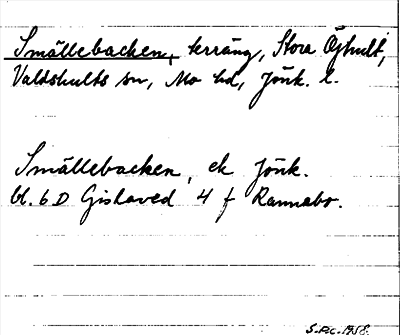 Smällebacken, terräng, Stora Öjhult,
Valdshults sn, Mo hd, Jönk. l.
Smällebacken, ek Jönk.
bl. 6 D Gislaved 4 f Rannebo.
S.Dc. 1958.